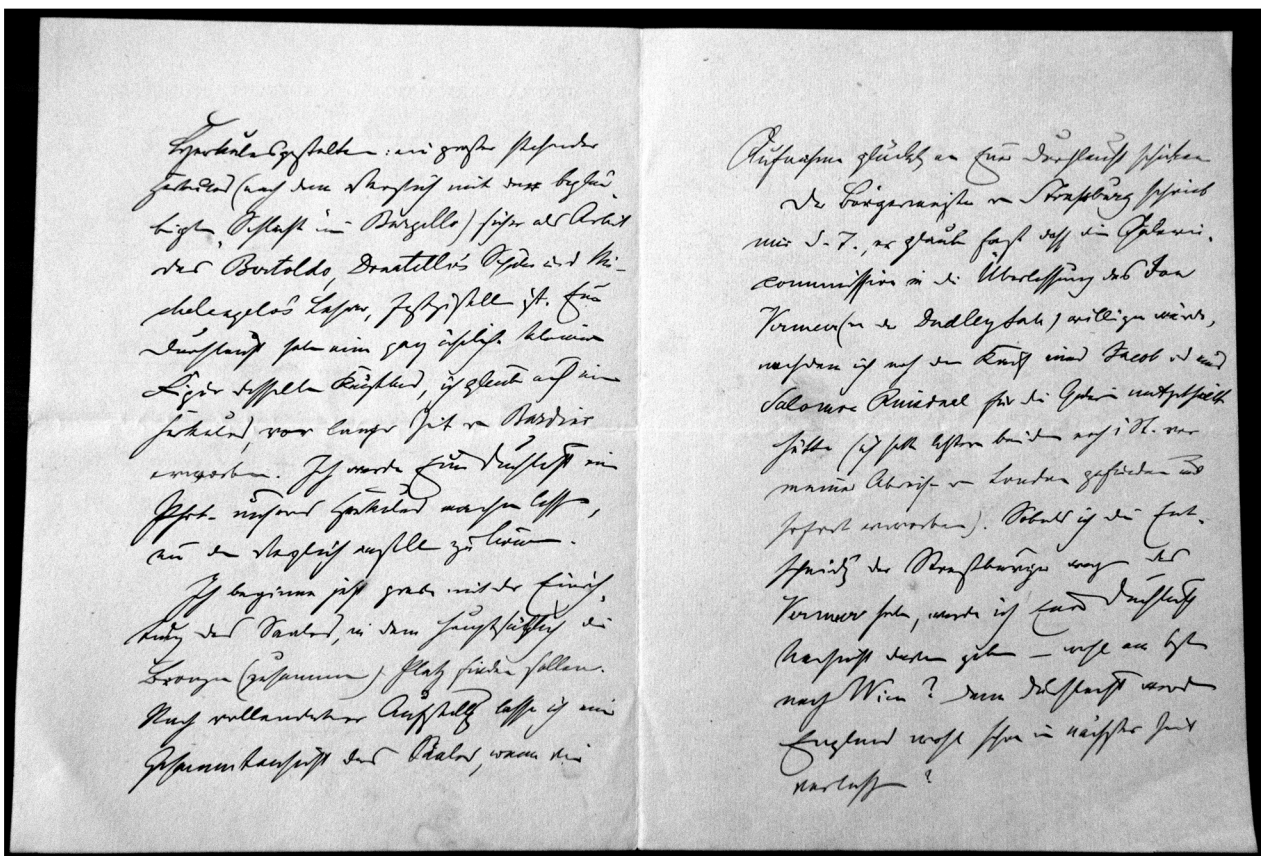 Herkulesgestalten: ein großer stehender
Herkules (nach dem Vergleich mit der beglau-
bigten „Schlacht“ im Bargello) sicher als Arbeit
des Bertoldo, Donatello's Schüler und Mi-
chelangelos Lehrer, festgestellt ist. Eure
Durchlaucht haben eine ganz ähnliche kleine
Figur desselben Künstlers, ich glaube auch ein
Herkules, vor langer Zeit von Bardini
erworben. Ich werde Eurer Durchlaucht eine
Phot. unseres Herkules machen lassen,
um den Vergleich anstellen zu können.
Ich beginne jetzt grade mit der Einrich-
tung des Saales, in dem hauptsächlich die
Bronzen (zusammen) Platz finden sollen.
Nach vollendeter Aufstellung lasse ich eine
Gesammtansicht des Saales, wenn die
Aufnahme glückt, an Eure Durchlaucht schicken
Der Bürgermeister von Straßburg schrieb
mir d. T., er glaube fast daß die Galerie-
commission in die Überlassung des Jan
Vermeer (von der Dudley Sale) willigen würde,
nachdem ich noch den Kauf eines Jacob und eines
Salomon Ruisdael für die Galerie mitgetheilt
hätte (ich hatte letztere beiden noch 1 St. vor
meiner Abreise von London gefunden und
sofort erworben). Sobald ich die Ent-
scheidung der Straßburger wegen des
Vermeer habe, werde ich Eurer Durchlaucht
Nachricht davon geben — wohl am besten
nach Wien? denn Durchlaucht werden
England wohl schon in nächster Zeit
verlassen?